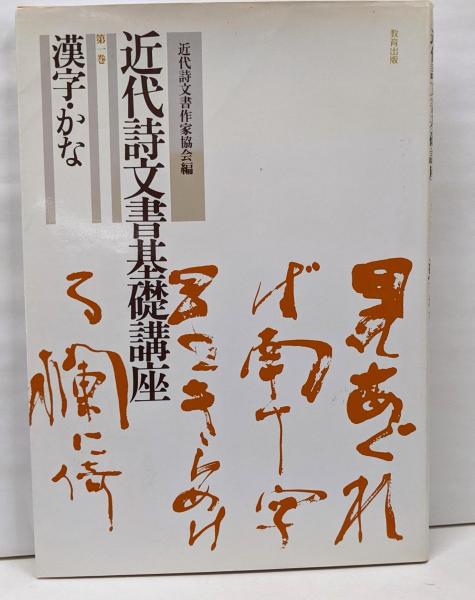 教育出版
近代詩文書作家協会編
近代詩文書基礎講座
第一巻
漢字・かな
見あぐれ
ば南十字
きらめけ
る欄に倚